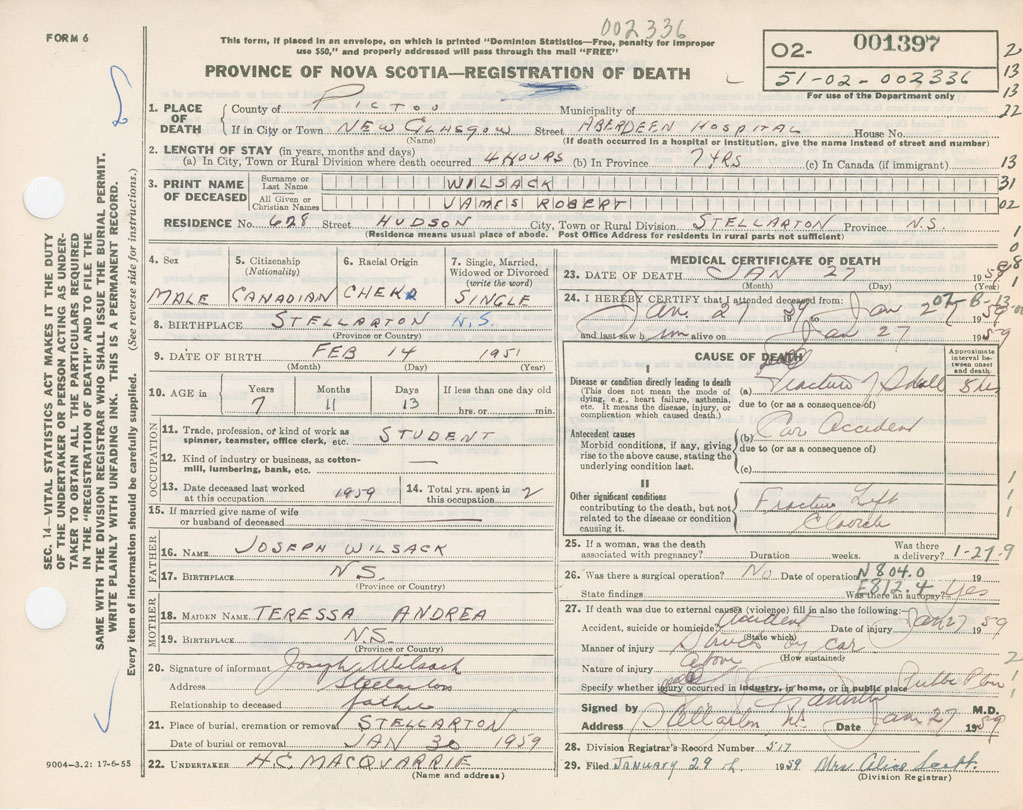 002336
FORM 6
This form, if placed in an envelope, on which is printed "Dominion Statistics—Free, penalty for improper
use $50," and properly addressed will pass through the mail "FREE"
O2- 001397
51-02-002336
For use of the Department only
PROVINCE OF NOVA SCOTIA—REGISTRATION OF DEATH
SEC. 14—VITAL STATISTICS ACT MAKES IT THE DUTY
OF THE UNDERTAKER OR PERSON ACTING AS UNDER-
TAKER TO OBTAIN ALL THE PARTICULARS REQUIRED
IN THE "REGISTRATION OF DEATH" AND TO FILE THE
SAME WITH THE DIVISION REGISTRAR WHO SHALL ISSUE THE BURIAL PERMIT.
WRITE PLAINLY WITH UNFADING INK. THIS IS A PERMANENT RECORD.
Every item of information should be carefully supplied. (See reverse side for instructions.)
1. PLACE OF DEATH
County of PICTOU Municipality of
If in City or Town NEW GLASGOW Street ABERDEEN HOSPITAL House No.
(Name) (If death occurred in a hospital or institution, give the name instead of street and number)
2. LENGTH OF STAY (in years, months and days)
(a) In City, Town or Rural Division where death occurred 4 HOURS (b) In Province 7 YRS (c) In Canada (if immigrant)
3. PRINT NAME OF DECEASED
Surname or Last Name WILSACK
All Given or Christian Names JAMES ROBERT
RESIDENCE No. 628 Street HUDSON City, Town or Rural Division STELLARTON Province N.S.
(Residence means usual place of abode. Post Office Address for residents in rural parts not sufficient)
2
13
13
22
13
31
02
4. Sex 5. Citizenship (Nationality) 6. Racial Origin 7. Single, Married, Widowed or Divorced (write the word)
MALE CANADIAN CHEK SINGLE
8. BIRTHPLACE STELLARTON N.S.
(Province or Country)
9. DATE OF BIRTH FEB 14 1951
(Month) (Day) (Year)
10. AGE in Years Months Days If less than one day old
7 11 13 hrs. or min.
OCCUPATION
11. Trade, profession, or kind of work as
spinner, teamster, office clerk, etc. STUDENT
12. Kind of industry or business, as cotton-
mill, lumbering, bank, etc. —
13. Date deceased last worked at this occupation 1959
14. Total yrs. spent in this occupation 2
15. If married give name of wife
or husband of deceased
FATHER
16. NAME JOSEPH WILSACK
17. BIRTHPLACE N.S.
(Province or Country)
MOTHER
18. MAIDEN NAME TERESSA ANDREA
19. BIRTHPLACE N.S.
(Province or Country)
20. Signature of informant Joseph Wilsack
Address Stellarton
Relationship to deceased father
21. Place of burial, cremation or removal STELLARTON
Date of burial or removal JAN 30 1959
22. UNDERTAKER H.C. MACQUARRIE
(Name and address)
9004-3.2: 17-6-55
MEDICAL CERTIFICATE OF DEATH
23. DATE OF DEATH JAN 27 1959
(Month) (Day) (Year)
24. I HEREBY CERTIFY that I attended deceased from:
Jan 27 1959 to Jan 27 1959
and last saw h im alive on Jan 27 1959
CAUSE OF DEATH
Approximate interval between onset and death
I
Disease or condition directly leading to death
(This does not mean the mode of
dying, e.g., heart failure, asthenia,
etc. It means the disease, injury, or
complication which caused death.)
(a) Fracture of Skull 5 hrs
due to (or as a consequence of)
Antecedent causes
Morbid conditions, if any, giving
rise to the above cause, stating the
underlying condition last.
(b) Car Accident
due to (or as a consequence of)
(c)
II
Other significant conditions
contributing to the death, but not
related to the disease or condition
causing it.
Fracture Left
25. If a woman, was the death
associated with pregnancy? Duration weeks. Was there a delivery? 1-27-9
26. Was there a surgical operation? No Date of operation 19
N804.0
E812.4
State findings Was there an autopsy? Yes
27. If death was due to external causes (violence) fill in also the following:
Accident, suicide or homicide Accident Date of injury Jan 27 1959
(State which)
Manner of injury Struck by car
(How sustained)
Nature of injury Above
Specify whether injury occurred in industry, in home, or in public place
Signed by M.D.
Address Stellarton N.S. Date Jan 27 1959
28. Division Registrar's Record Number 517
29. Filed JANUARY 29th 1959 Mrs Alice Scott.
(Division Registrar)